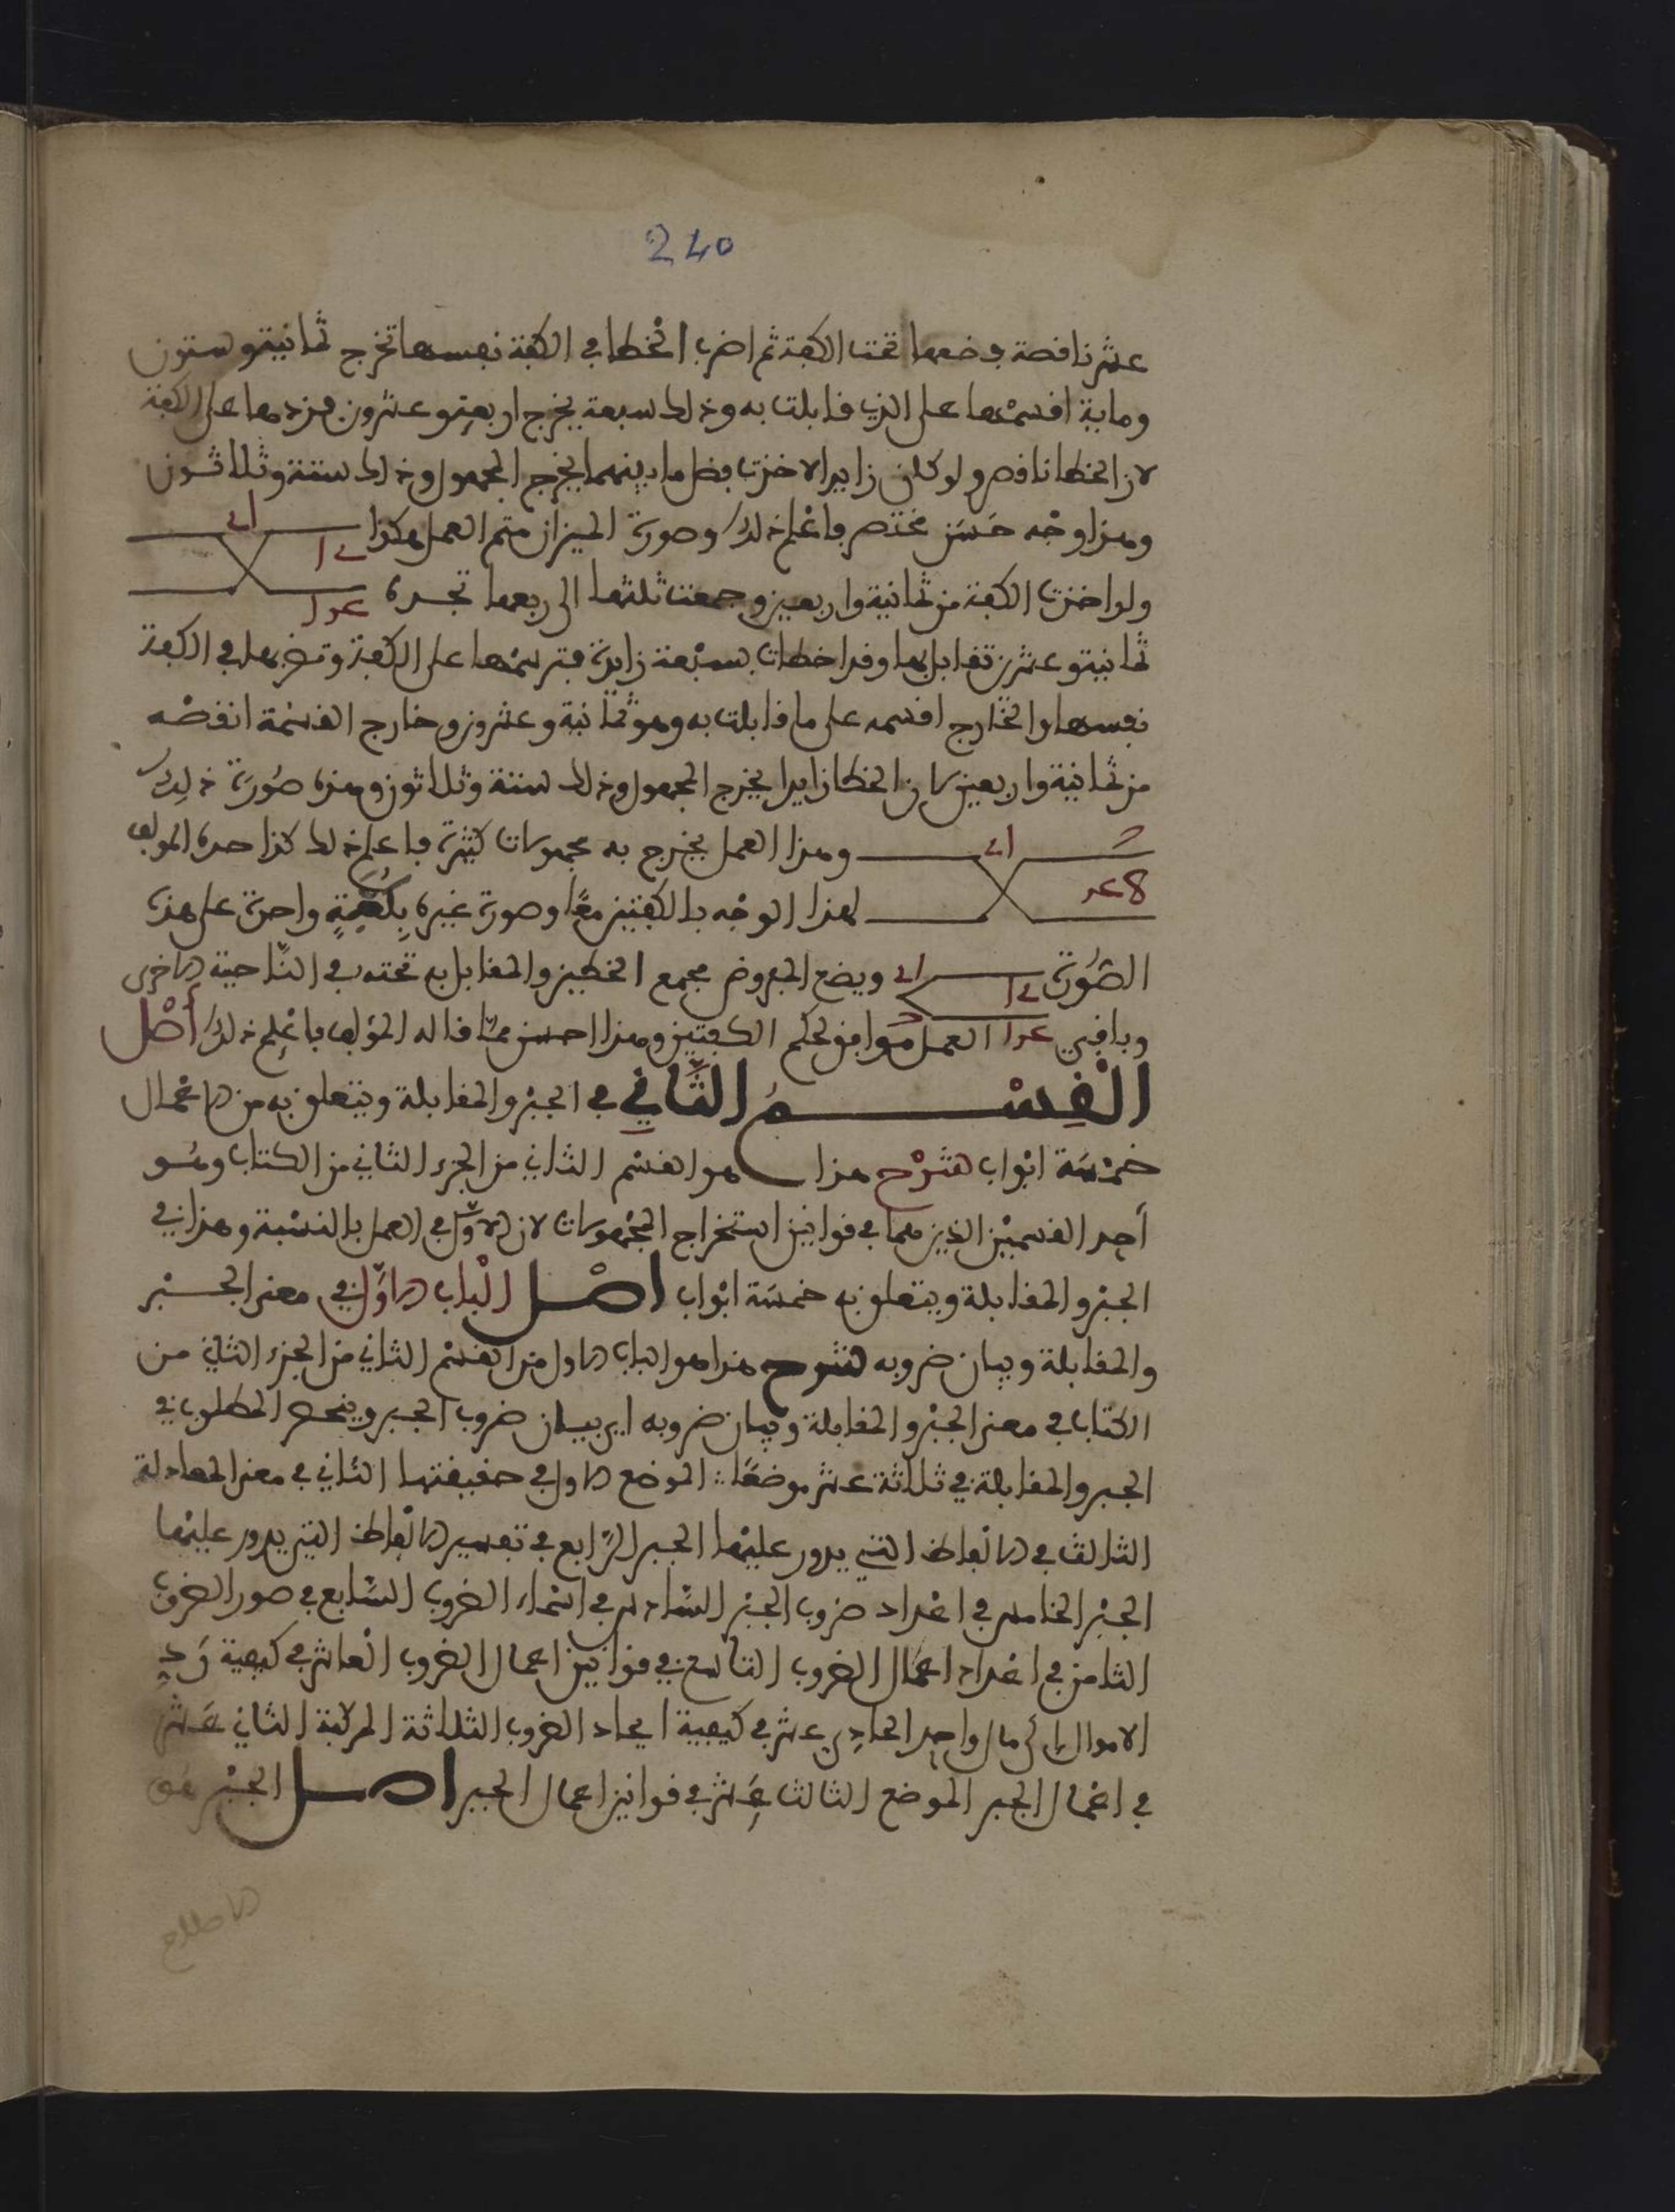 240
عشر ناقصة فضعها تحت الكفة ثم اضرب الخطا في الكفة نفسها تخرج ثمانية وستون
وماية اقسمها على الذي قابلت به وذلك سبعة يخرج اربعة وعشرون فزدها على الكفة
لان الخطا ناقص ولو كان زايدا لاخذت فضل ما بينهما يخرج المجهول وذلك ستة وثلاثون
وهذا وجه حسن مختصر فاعلم ذلك وصورة الميزان متم العمل هكذا
ولو اخذت الكفة من ثمانية واربعين وجمعت ثلثها الى ربعها تجده
ثمانية وعشرين تقابل بها وقد اخطات بسبعة زايدة فترسمها على الكفة وتضربها في الكفة
نفسها والخارج اقسمه على ما قابلت به وهو ثمانية وعشرون وخارج القسمة انقصه
من ثمانية واربعين لان الخطا زايدا يخرج المجهول وذلك ستة وثلاثون وهذه صورة ذلك
وهذا العمل يخرج به مجهولات كثيرة فاعلم ذلك كذا حده المولف
لهذا الوجه بالكفتين معا وصورة غيره بكفة واحدة على هذه
الصورة ويضع المفروض مجمع الخطين والمقابل به تحته في الناحية الاخرى
وباقي العمل موافق لحكم الكفتين وهذا احسن مما قاله المؤلف فاعلم ذلك أصل
القسم الثاني في الجبر والمقابلة ويتعلق به من الاعمال
خمسة ابواب شرح هذا هو القسم الثاني من الجزء الثاني من الكتاب وهو
أحد القسمين الذين هما في قوانين استخراج المجهولات لان الاول في العمل بالنسبة وهذا في
الجبر والمقابلة ويتعلق به خمسة ابواب اصل الباب الاول في معنى الجبر
والمقابلة وبيان ضروبه شرح هذا هو الباب الاول من القسم الثاني من الجزء الثاني من
الكتاب في معنى الجبر والمقابلة وبيان ضروبه اي بيان ضروب الجبر وينحصر المطلوب في
الجبر والمقابلة في ثلاثة عشر موضعا الموضع الاول في حقيقتها الثاني في معنى المعادلة
الثالث في الالفاظ التي يدور عليها الجبر الرابع في تفسير الالفاظ التي يدور عليها
الجبر الخامس في اعداد ضروب الجبر السادس في اسماء الضروب السابع في صور الضرب
الثامن في اعداد اعمال الضروب التاسع في قوانين اعمال الضروب العاشر في كيفية رد
الاموال الى مال واحد الحادي عشر في كيفية ايجاد الضروب الثلاثة المركبة الثاني عشر
في اعمال الجبر الموضع الثالث عشر في قوانين اعمال الجبر اصل الجبر هو
الاصلاح